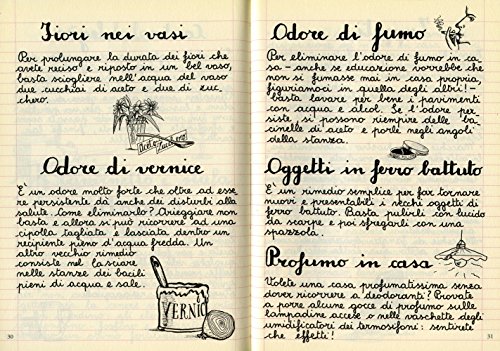 Fiori nei vasi
Per prolungare la durata dei fiori che
avete reciso e riposto in un bel vaso,
basta sciogliere nell'acqua del vaso
due cucchiai di aceto e due di zuc_
chero.
Aceto
Zucchero!
Odore di vernice
È un odore molto forte che oltre ad esse_
re persistente dà anche dei disturbi alla
salute. Come eliminarlo? Arieggiare non
basta e allora si può ricorrere ad una
cipolla tagliata e lasciata dentro un
recipiente pieno d'acqua fredda. Un
altro vecchio rimedio
consiste nel lasciare
nelle stanze dei bacili
pieni di acqua e sale.
VERNIC
30
Odore di fumo
Per eliminare l'odore di fumo in ca_
sa - anche se educazione vorrebbe che
non si fumasse mai in casa propria,
figuriamoci in quella degli altri! -
basta lavare per bene i pavimenti
con acqua e alcol. Se l'odore per_
siste, si possono riempire delle ba_
cinelle di aceto e porle negli angoli
della stanza.
Oggetti in ferro battuto
È un rimedio semplice per far tornare
nuovi e presentabili i vecchi oggetti di
ferro battuto. Basta pulirli con lucido
da scarpe e poi sfregarli con una
spazzola.
Profumo in casa
Volete una casa profumatissima senza
dover ricorrere a deodoranti? Provate
a porre alcune gocce di profumo sulle
lampadine accese o nelle vaschette degli
umidificatori dei termosifoni: sentirete
che effetti!
31